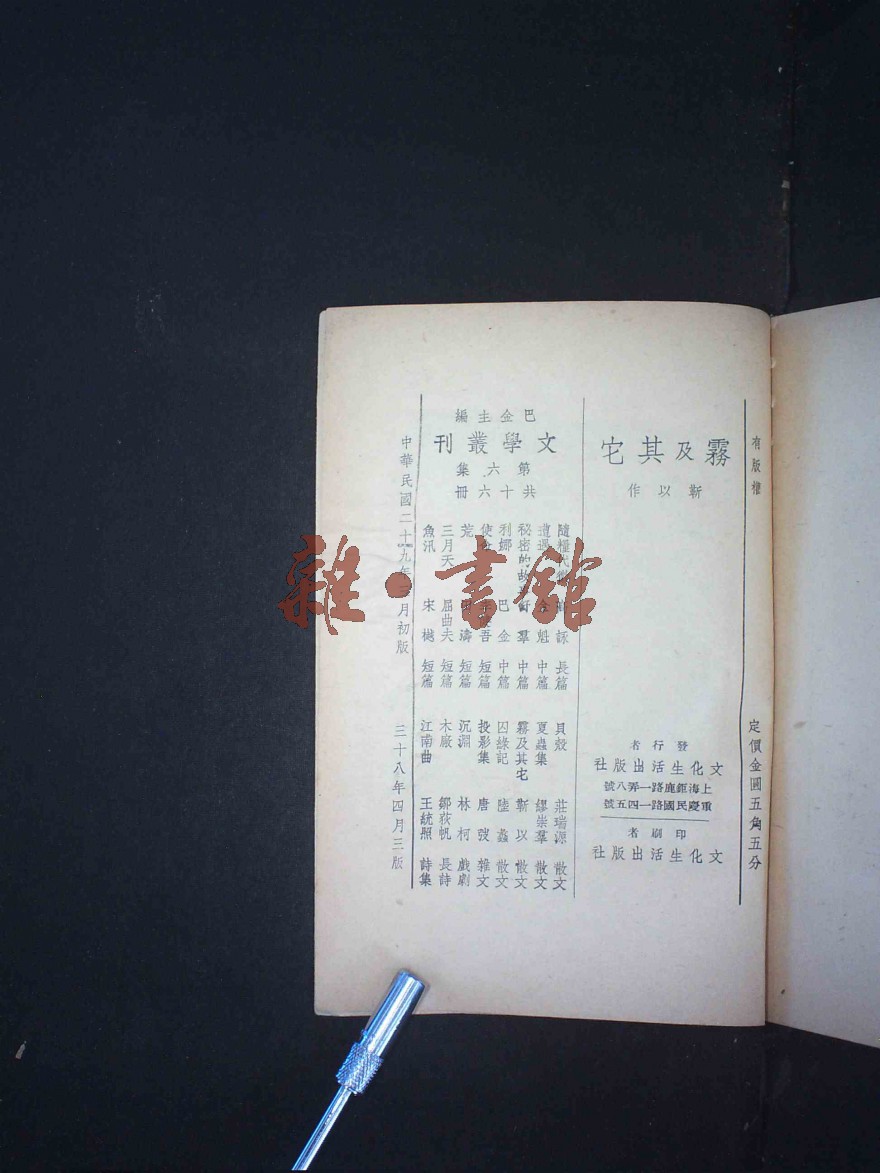 有版權
定價金圓五角五分
霧及其宅
靳以作
發行者
文化生活出版社
上海鉅鹿路一弄八號
重慶民國路一四五號
印刷者
文化生活出版社
巴金主編
文學叢刊
第六集
共十六冊
隨糧代 詠 長篇
遭遇 魁 中篇
秘密的故 羣 中篇
利娜 巴金 中篇
使 吾 短篇
荒 濤 短篇
三月天 屈曲夫 短篇
魚汛 宋樾 短篇
貝殼 莊瑞源 散文
夏蟲集 繆崇羣 散文
霧及其宅 靳以 散文
囚綠記 陸蠡 散文
投影集 唐弢 雜文
沉淵 林柯 戲劇
木廠 鄒荻帆 長詩
江南曲 王統照 詩集
中華民國二十九年 月初版
三十八年四月三版
雜·書館